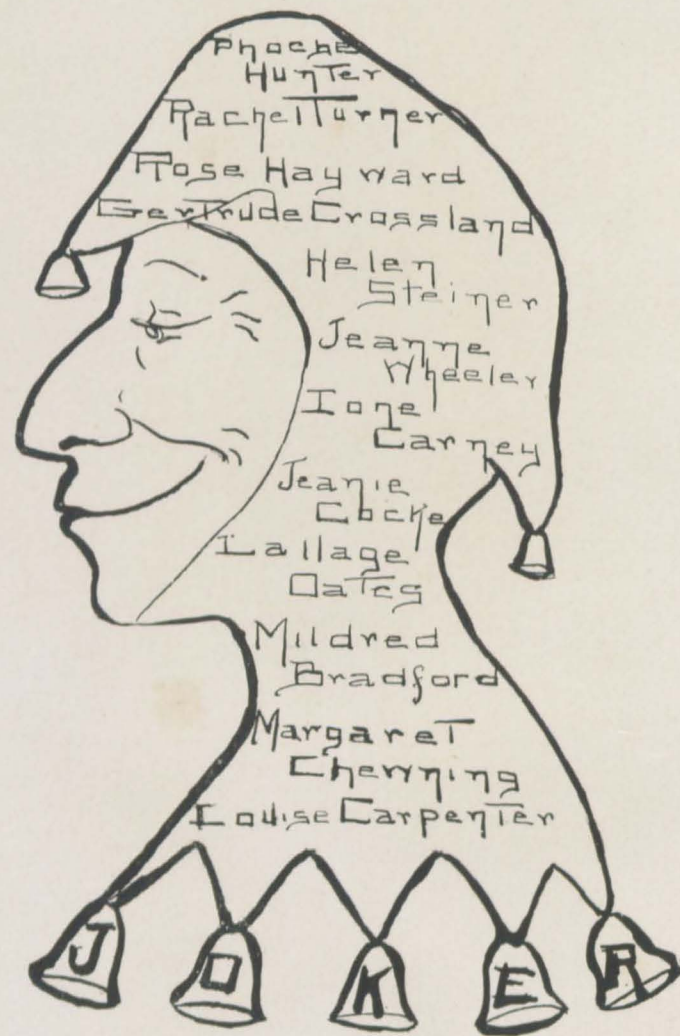 Phoebe
Hunter
Rachel Turner
Rose Hayward
Gertrude Crossland
Helen
Steiner
Jeanne
Wheeler
Ione
Carney
Jeanie
Cocke
Lallage
Oates
Mildred
Bradford
Margaret
Chewning
Louise Carpenter
JOKER